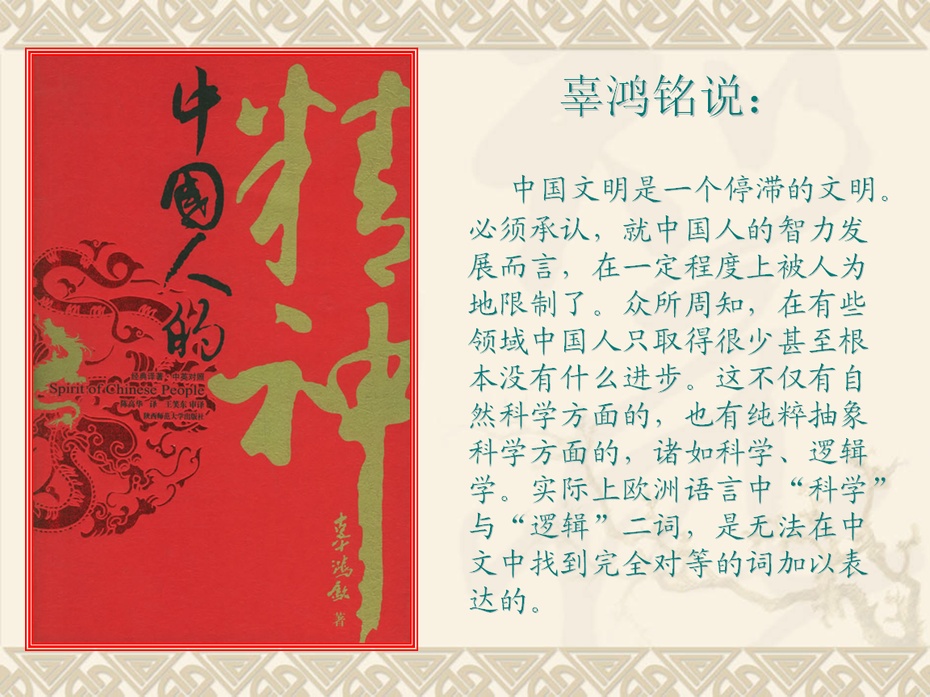 中國人的
精神
经典译著·中英对照
Spirit of Chinese People
陈高华 译 王笑东 审译
陕西师范大学出版社
辜鸿铭 著
辜鸿铭说：
中国文明是一个停滞的文明。
必须承认，就中国人的智力发
展而言，在一定程度上被人为
地限制了。众所周知，在有些
领域中国人只取得很少甚至根
本没有什么进步。这不仅有自
然科学方面的，也有纯粹抽象
科学方面的，诸如科学、逻辑
学。实际上欧洲语言中“科学”
与“逻辑”二词，是无法在中
文中找到完全对等的词加以表
达的。